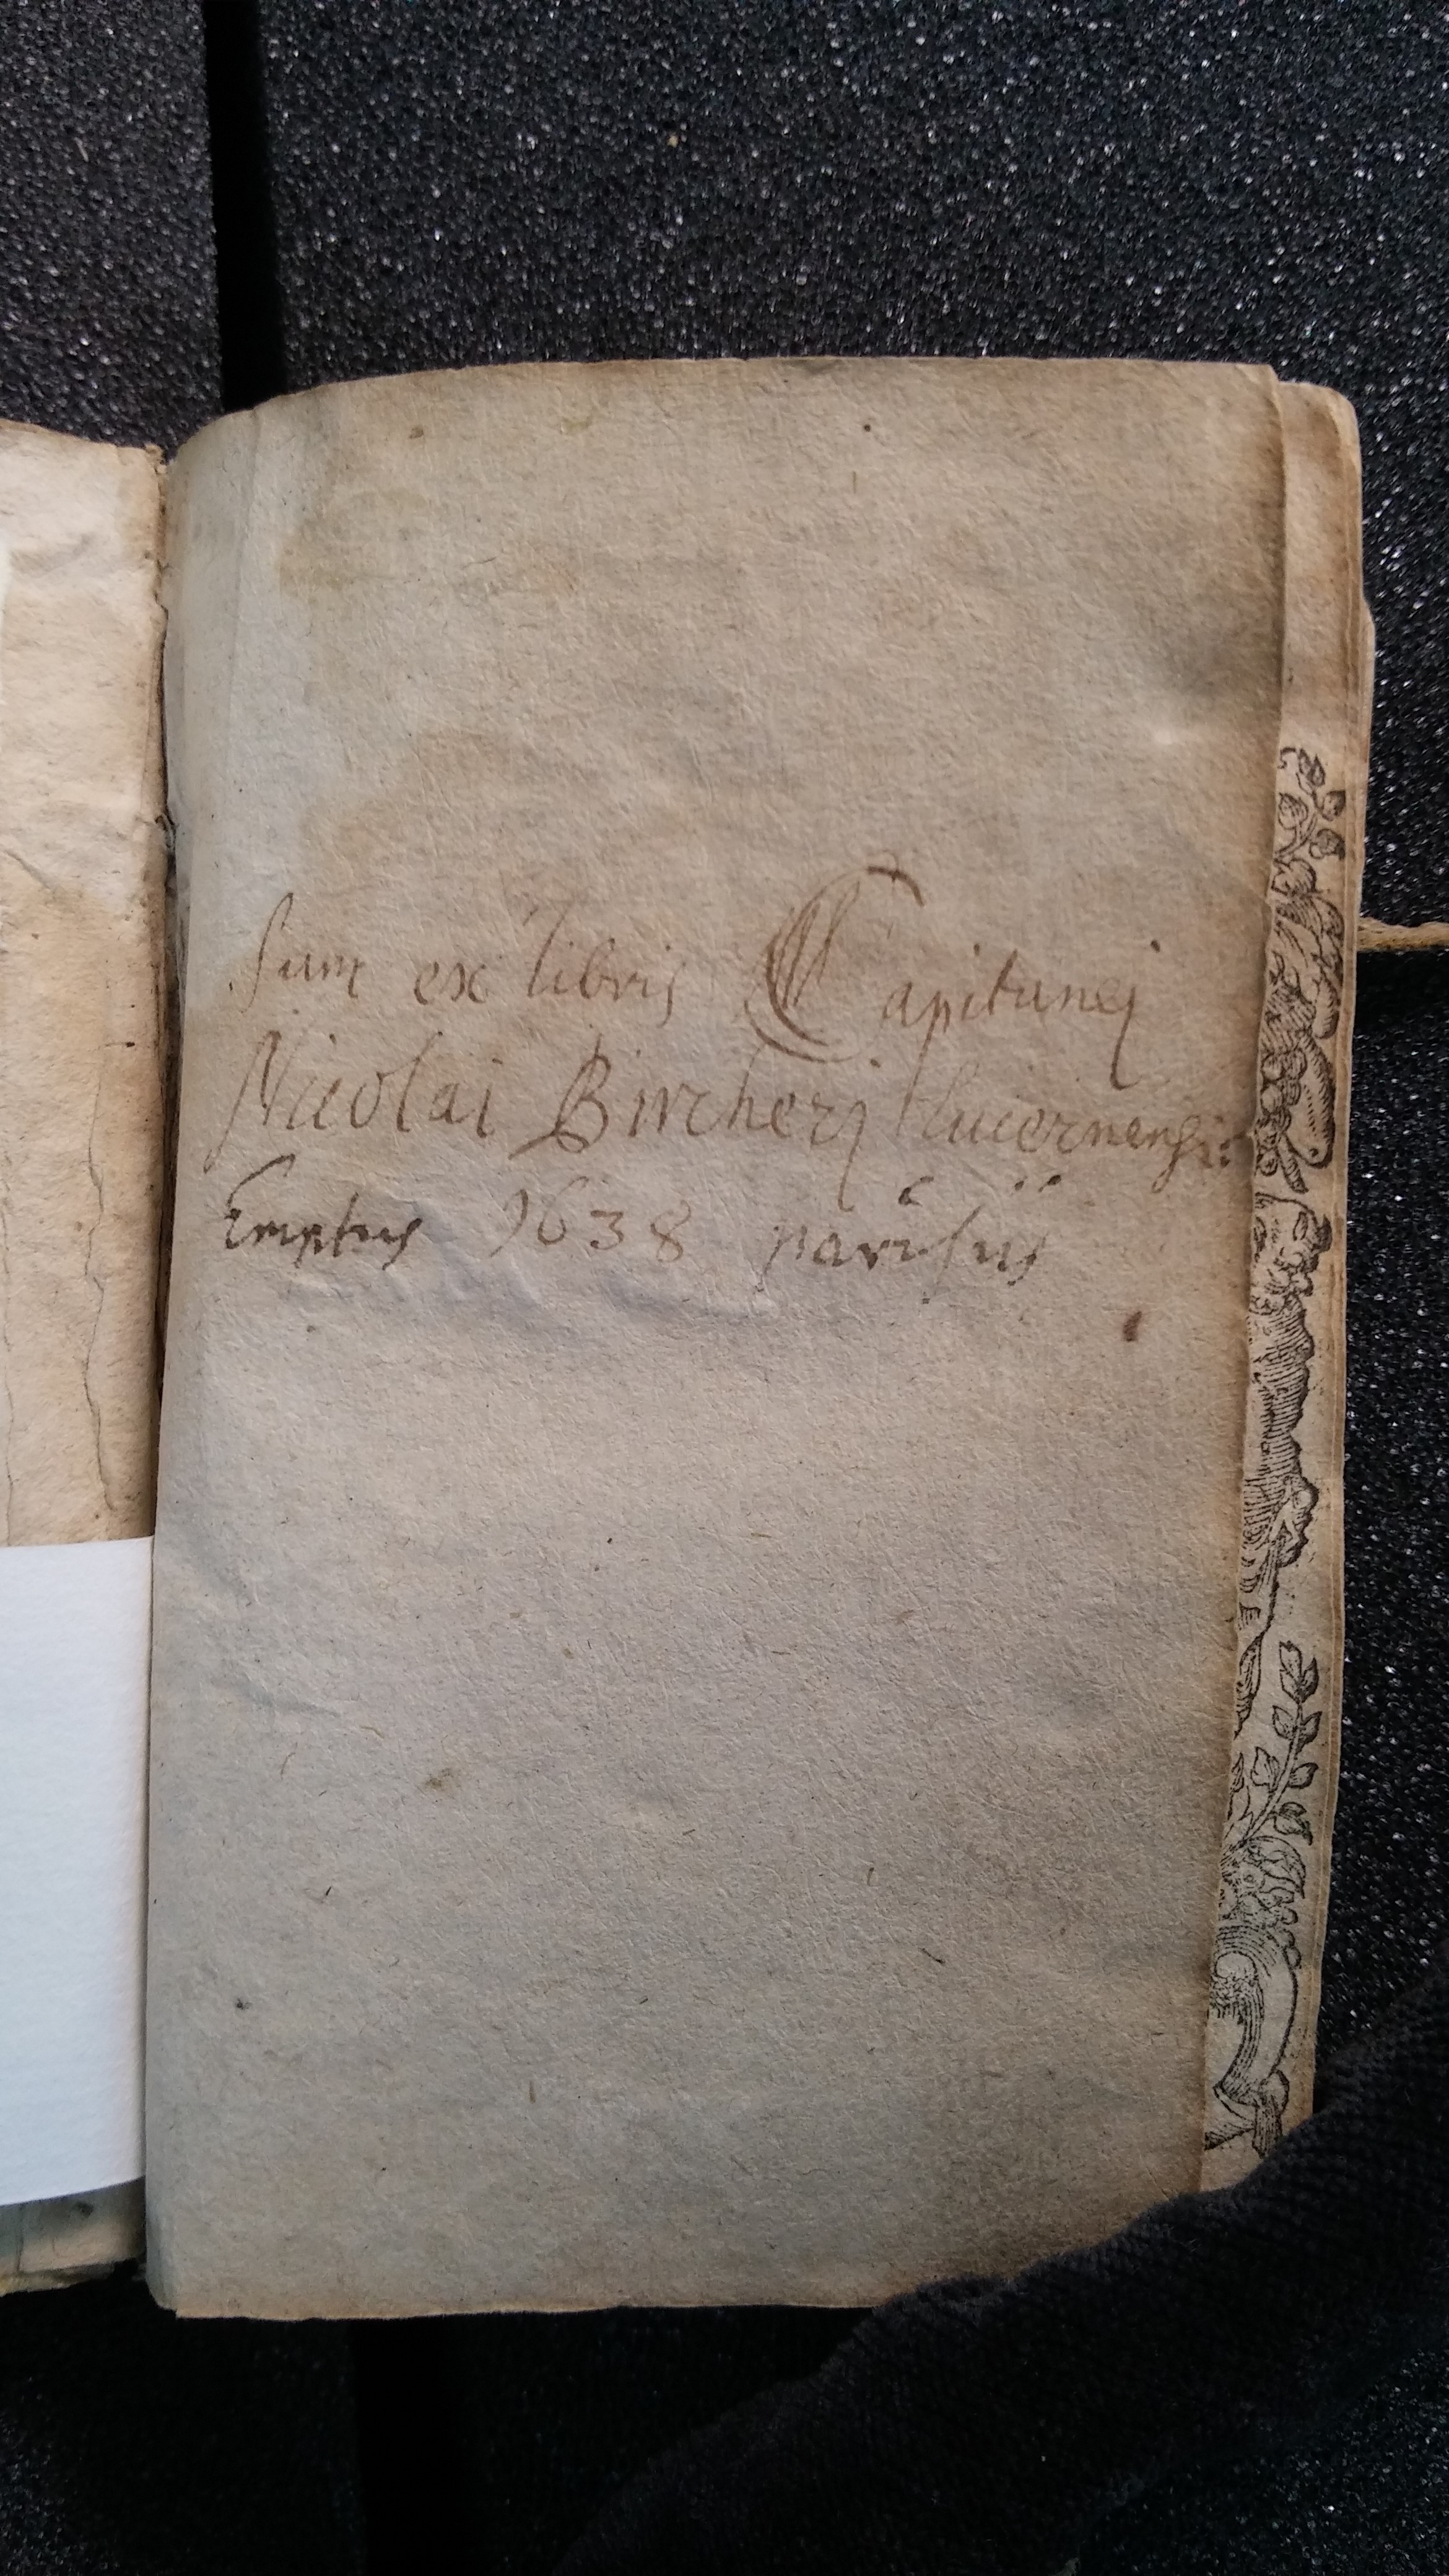 Sum ex libris Capitanej
Nicolai Bircherj Lucernensis
Emptus 1638 parisiis